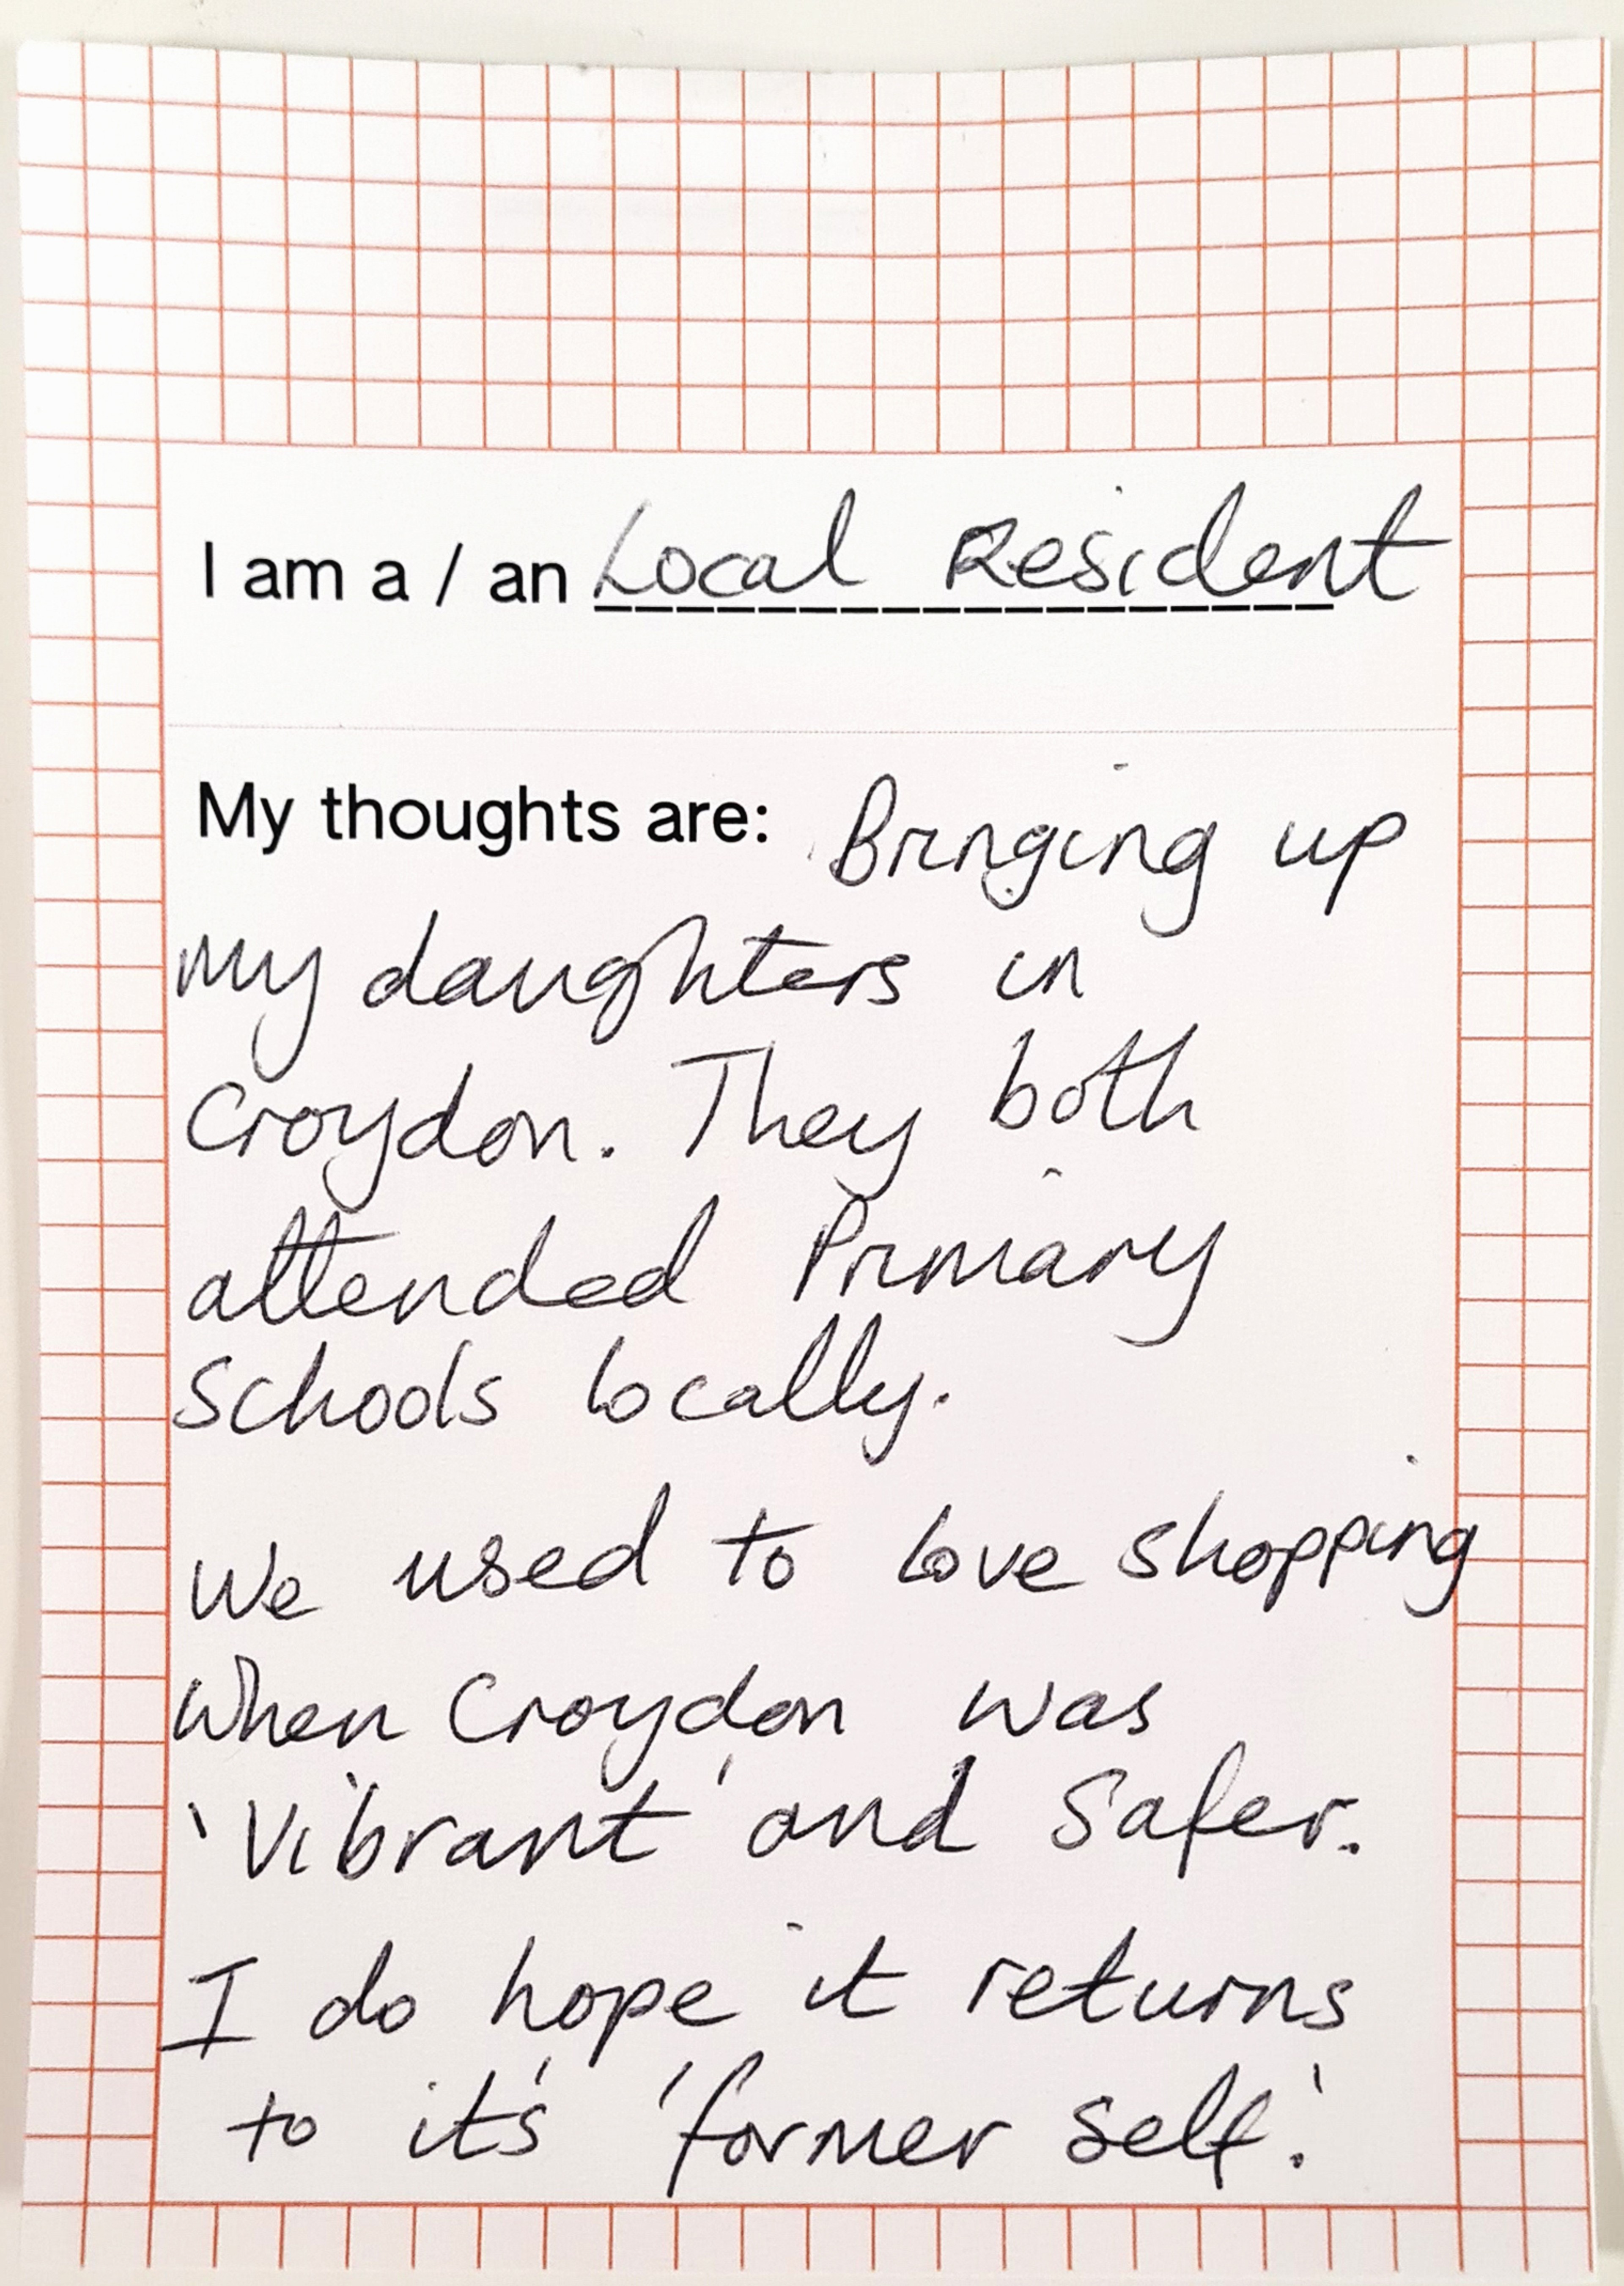 I am a / an Local Resident
My thoughts are: Bringing up
my daughters in
Croydon. They both
attended Primary
Schools locally.
We used to love shopping
when Croydon was
'Vibrant' and Safer.
I do hope it returns
to it's 'former self.'